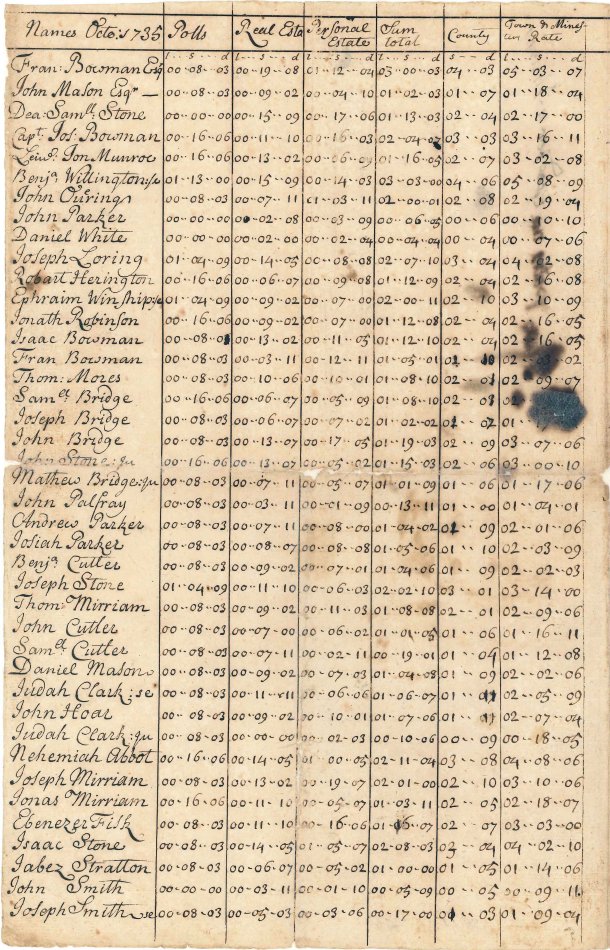 Names Octo: 1735 Polls Real Esta Personal Estate Sum total County Town & Minis- Rate
l---s---d l---s---d l---s---d l---s---d s---d l---s---d
Fran: Bowman Esq 00--08--03 00--19--08 01--12--04 03--00--03 04--03 05--03--07
John Mason Esqr — 00--08--03 00--09--02 00--04--10 01--02--03 01--07 01--18--04
Dea: Samll: Stone 00--00--00 00--15--09 00--17--06 01--13--03 02--04 02--17--00
Capt: Jos: Bowman 00--16--06 00--11--10 00--16--03 02--04--07 03--03 03--16--11
Leiut: Jon Munroe 00--16--06 00--13--02 00--06--09 01--16--05 02--07 03--02--08
Benja Willington:se 01--13--00 00--15--09 00--14--03 03--03--00 04--06 05--08--09
John 00--08--03 00--07--11 01--03--11 02--00--01 02--08 02--19--04
John Parker 00--00--00 00--02--08 00--03--09 00--06--05 00--06 00--10--10
Daniel White 00--00--00 00--02--00 00--02--04 00--04--04 00--04 00--07--06
Joseph Loring 01--04--09 00--14--05 00--08--08 02--07--10 03--04 04--02--08
Robart Herington 00--16--06 00--06--07 00--09--08 01--12--09 02--04 02--16--08
Ephraim Winship:se 01--04--09 00--09--02 00--07--00 02--00--11 02--10 03--10--09
Jonath Robinson 00--16--06 00--09--02 00--07--00 01--12--08 02--04 02--16--05
Isaac Bowman 00--08--03 00--13--02 00--11--05 01--12--10 02--04 02--16--05
Fran Bowman 00--08--03 00--03--11 00--12--11 01--05--01 02--03--02
Thom: Mozes 00--08--03 00--10--06 00--10--01 01--08--10 02--01 02--09--07
Samel: Bridge 00--16--06 00--06--07 00--05--09 01--08--10 02--03
Joseph Bridge 00--08--03 00--06--07 00--07--02 01--02--02 01--07 01--
John Bridge 00--08--03 00--13--07 00--17--05 01--19--03 02--09 03--07--06
John Stone:ju 00--16--06 00--13--07 00--05--02 01--15--03 02--06 03--00--10
Mathew Bridge:ju 00--08--03 00--07--11 00--05--07 01--01--09 01--06 01--17--06
John Palfray 00--08--03 00--03--11 00--01--09 00--13--11 01--00 01--04--01
Andrew Parker 00--08--03 00--07--11 00--08--00 01--04--02 01--09 02--01--06
Josiah Parker 00--08--03 00--08--07 00--08--08 01--05--06 01--10 02--03--09
Benja Cutler 00--08--03 00--09--02 00--07--01 01--04--06 01--09 02--02--03
Joseph Stone 01--04--09 00--11--10 00--06--03 02--02--10 03--01 03--14--00
Thom: Mirriam 00--08--03 00--09--02 00--11--03 01--08--08 02--01 02--09--06
John Cutler 00--08--03 00--07--00 00--06--02 01--01--05 01--06 01--16--11
Samel Cutler 00--08--03 00--07--11 00--02--11 00--19--01 01--04 01--12--08
Daniel Mason 00--08--03 00--09--02 00--07--03 01--04--08 01--09 02--02--06
Judah Clark:se 00--08--03 00--11--11 00--06--06 01--06--07 01--11 02--05--09
John Hoar 00--08--03 00--09--02 00--10--01 01--07--06 01--11 02--07--04
Judah Clark:ju 00--08--03 00--00--00 00--02--03 00--10--06 00--09 00--18--05
Nehemiah Abbot 00--16--06 00--14--05 01--00--05 02--11--04 03--08 04--08--06
Joseph Mirriam 00--08--03 00--13--02 00--19--07 02--01--00 02--10 03--10--06
Jonas Mirriam 00--16--06 00--11--10 00--05--07 01--03--11 02--05 02--18--07
Ebenezer Fisk 00--08--03 00--11--10 00--16--06 01--16--07 02--07 03--03--00
Isaac Stone 00--08--03 00--14--05 01--05--07 02--08--03 03--04 04--02--10
Jabez Stratton 00--08--03 00--06--07 00--05--02 01--00--00 01--05 01--14--06
John Smith 00--00--00 00--03--11 00--01--10 00--05--09 00--05 00--09--11
Joseph Smith se 00--08--03 00--05--03 00--03--06 00--17--00 01--03 01--09--04